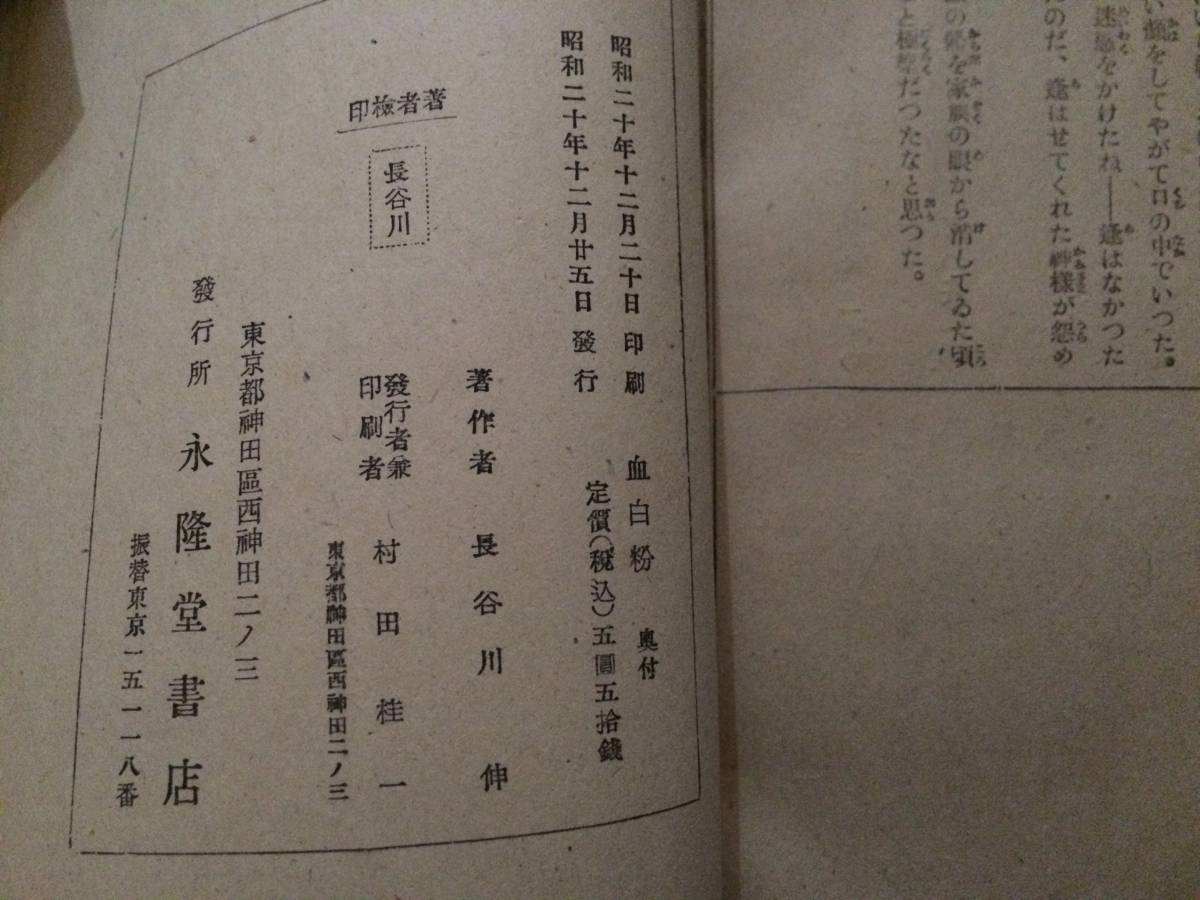 い顏をしてやがて口の中でいつた。
迷惑をかけたね――逢はなかつた
のだ、逢はせてくれた神様が怨め
を家族の眼から消してゐた頃
と極樂だつたなと思つた。
血白粉 奥付
定價(税込)五圓五拾錢
昭和二十年十二月二十日印刷
昭和二十年十二月廿五日發行
著作者 長谷川伸
發行者兼
印刷者 村田桂一
東京都神田區西神田二ノ三
印檢者著
長谷川
東京都神田區西神田二ノ三
發行所 永隆堂書店
振替東京一五一一八番